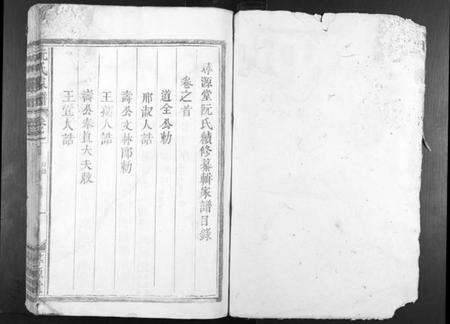 尋源堂阮氏續修纂輯家譜目錄
卷之首
道全公勅
邢淑人誥
壽公文林郎勅
王孺人誥
壽公奉直大夫敕
王宜人誥